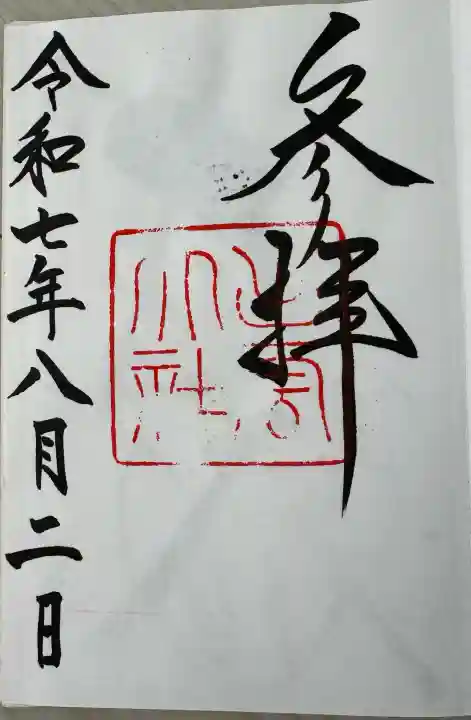 参拝
令和七年八月二日